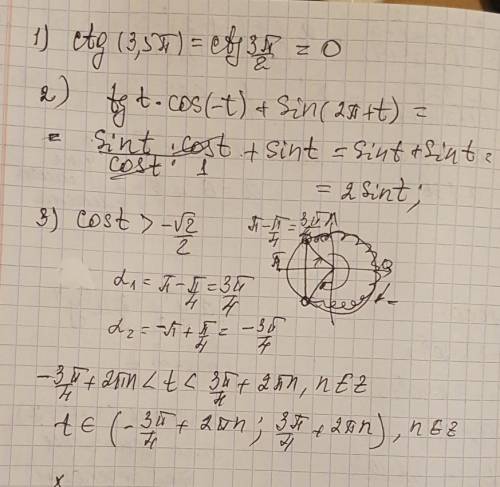 1) ctg (3,5π) = ctg 3π/2 = 0
2) tg t · cos(-t) + sin(2π+t) =
= sin t · cos t / cos t · 1 + sin t = sin t + sin t =
= 2 sin t ;
3) cos t > -√2/2
π - π/4 = 3π/4
π
0
α₁ = π - π/4 = 3π/4
α₂ = -π + π/4 = -3π/4
-3π/4 + 2πn < t < 3π/4 + 2πn, n ∈ Z
t ∈ (-3π/4 + 2πn ; 3π/4 + 2πn), n ∈ Z
x